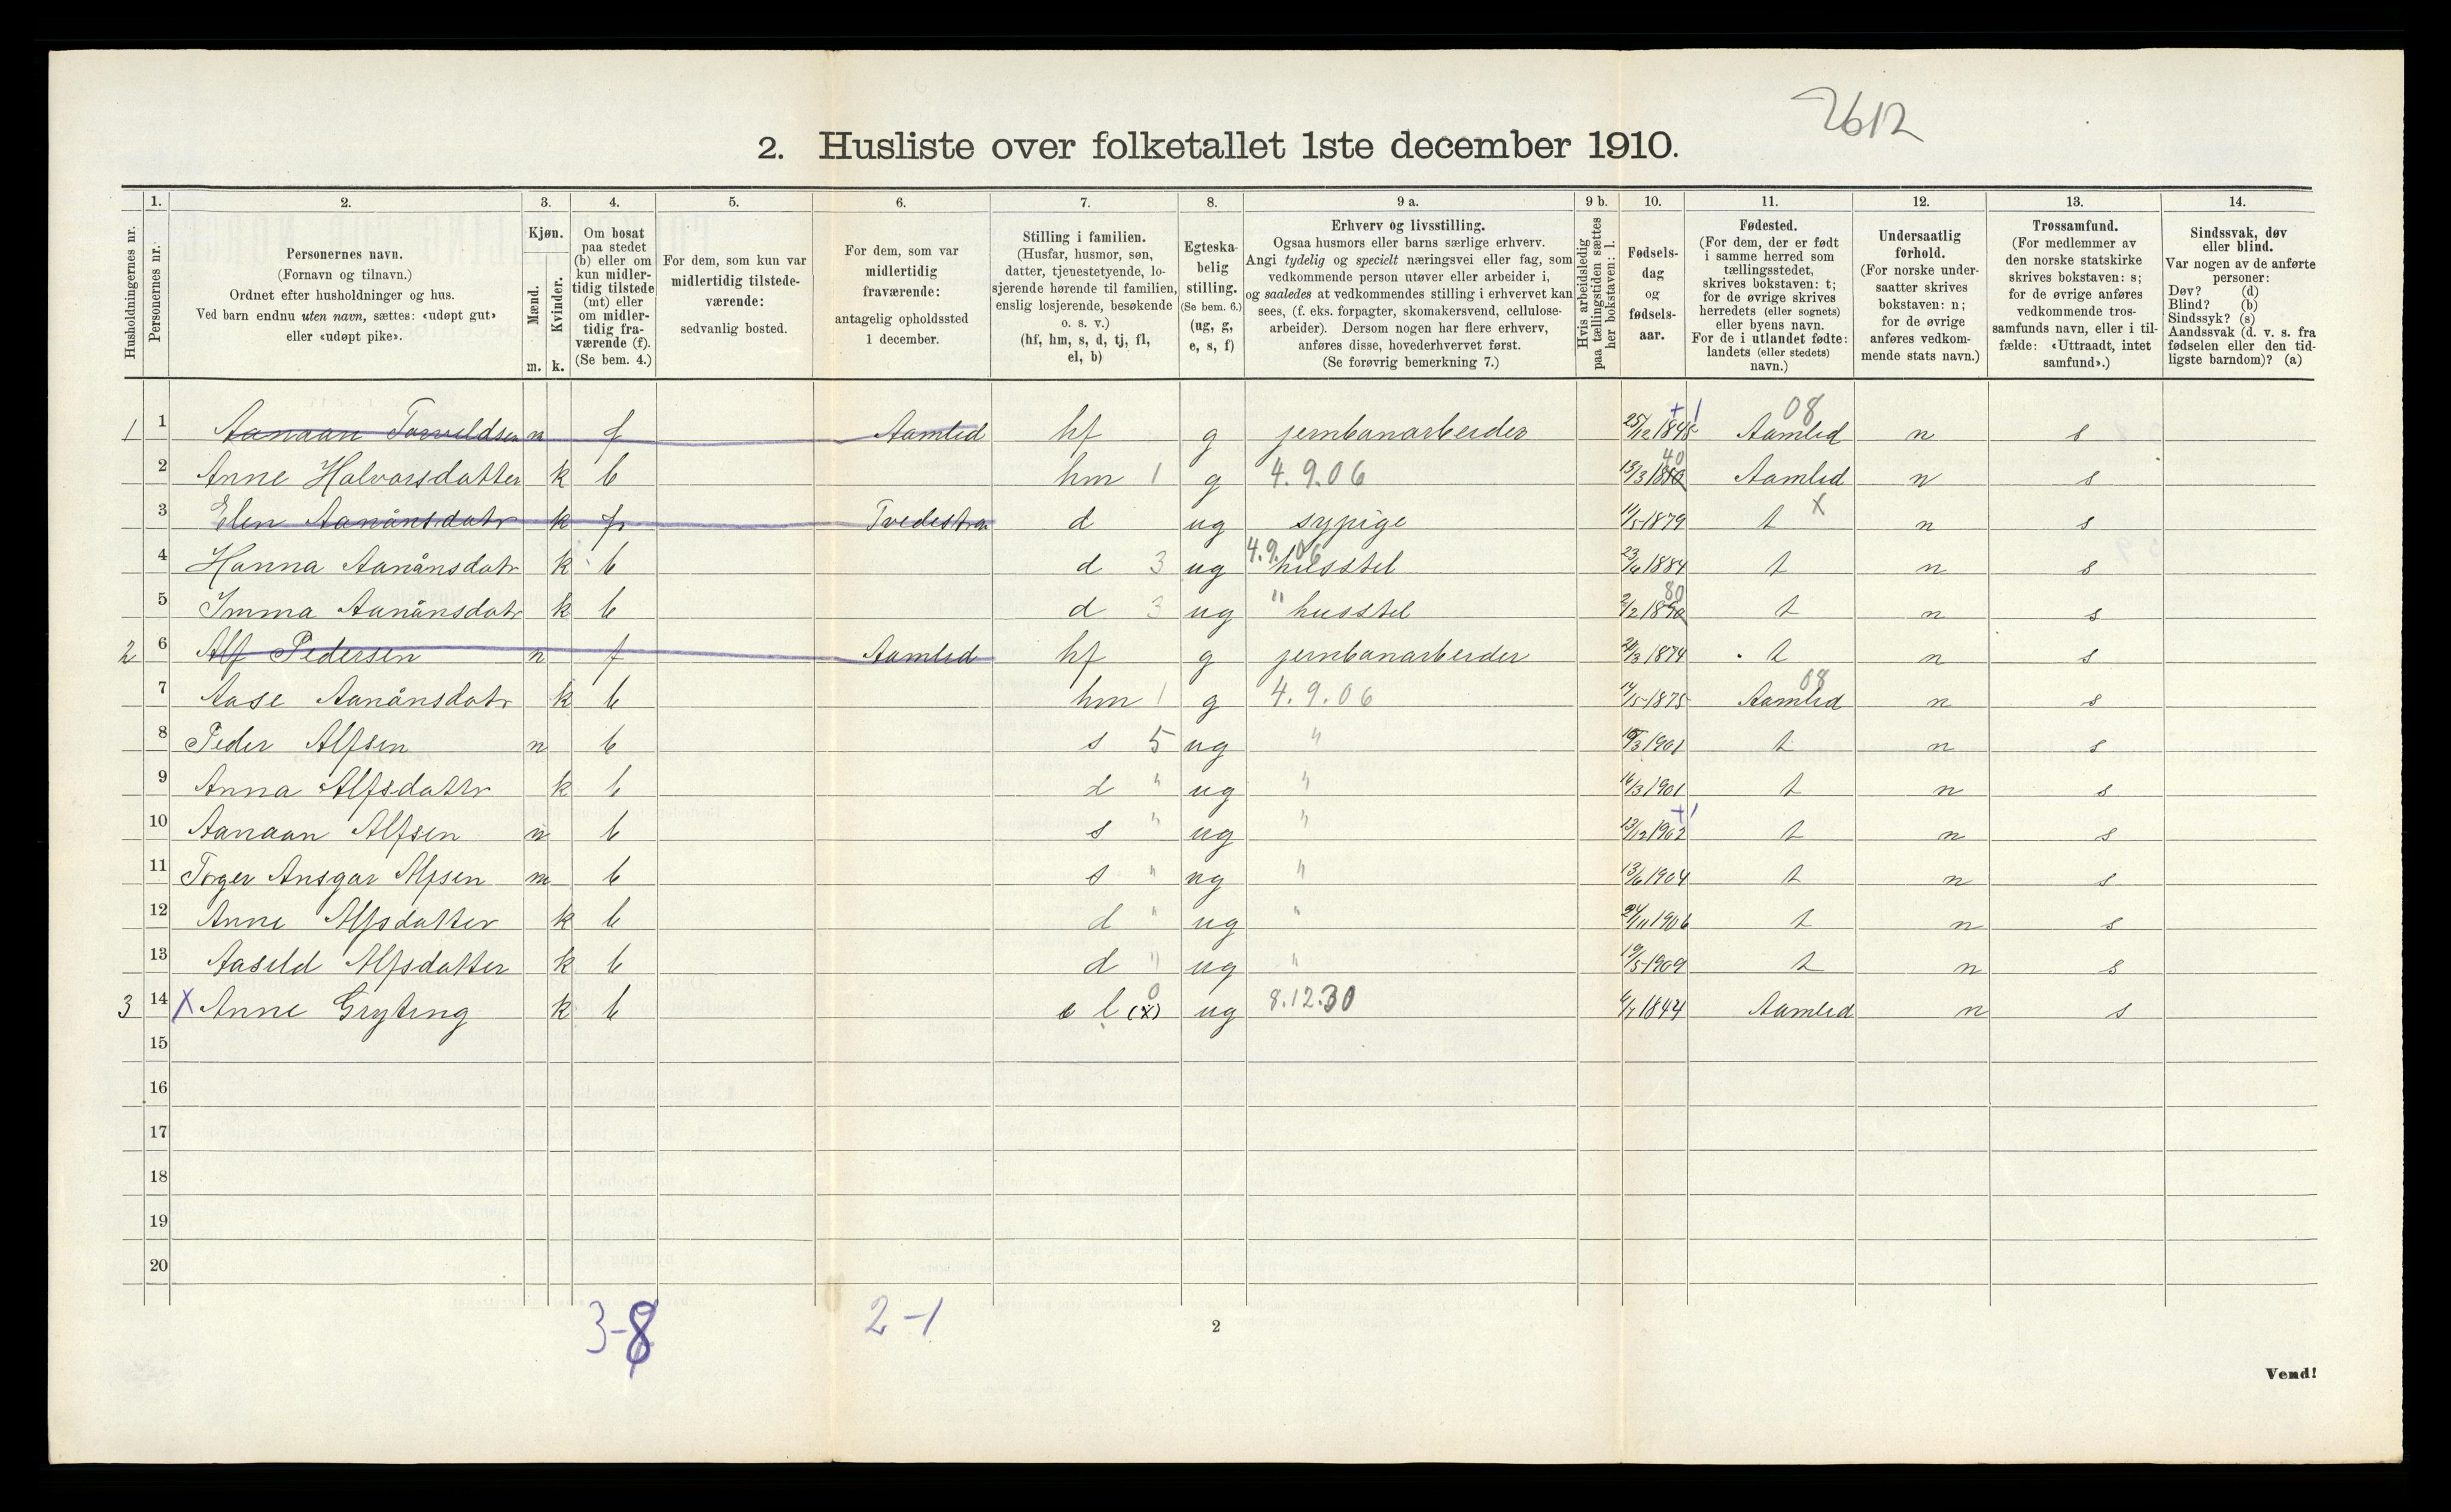 2612
2. Husliste over folketallet 1ste december 1910.
1. 2. 3. 4. 5. 6. 7. 8. 9 a. 9 b. 10. 11. 12. 13. 14.
Husholdningernes nr.
Personernes nr.
Personernes navn.
(Fornavn og tilnavn.)
Ordnet efter husholdninger og hus.
Ved barn endnu uten navn, sættes: «udøpt gut»
eller «udøpt pike».
Kjøn.
Mænd.
Kvinder.
m. k.
Om bosat
paa stedet
(b) eller om
kun midler-
tidig tilstede
(mt) eller
om midler-
tidig fra-
værende (f).
(Se bem. 4.)
For dem, som kun var
midlertidig tilstede-
værende:
sedvanlig bosted.
For dem, som var
midlertidig
fraværende:
antagelig opholdssted
1 december.
Stilling i familien.
(Husfar, husmor, søn,
datter, tjenestetyende, lo-
sjerende hørende til familien,
enslig losjerende, besøkende
o. s. v.)
(hf, hm, s, d, tj, fl,
el, b)
Egteska-
belig
stilling.
(Se bem. 6.)
(ug, g,
e, s, f)
Erhverv og livsstilling.
Ogsaa husmors eller barns særlige erhverv.
Angi tydelig og specielt næringsvei eller fag, som
vedkommende person utøver eller arbeider i,
og saaledes at vedkommendes stilling i erhvervet kan
sees, (f. eks. forpagter, skomakersvend, cellulose-
arbeider). Dersom nogen har flere erhverv,
anføres disse, hovederhvervet først.
(Se forøvrig bemerkning 7.)
Hvis arbeidsledig
paa tællingstiden sættes
her bokstaven: l.
Fødsels-
dag
og
fødsels-
aar.
Fødested.
(For dem, der er født
i samme herred som
tællingsstedet,
skrives bokstaven: t;
for de øvrige skrives
herredets (eller sognets)
eller byens navn.
For de i utlandet fødte:
landets (eller stedets)
navn.)
Undersaatlig
forhold.
(For norske under-
saatter skrives
bokstaven: n;
for de øvrige
anføres vedkom-
mende stats navn.)
Trossamfund.
(For medlemmer av
den norske statskirke
skrives bokstaven: s;
for de øvrige anføres
vedkommende tros-
samfunds navn, eller i til-
fælde: «Uttraadt, intet
samfund».)
Sindssvak, døv
eller blind.
Var nogen av de anførte
personer:
Døv? (d)
Blind? (b)
Sindssyk? (s)
Aandssvak (d. v. s. fra
fødselen eller den tid-
ligste barndom)? (a)
1 1 Aanaan Torvildsen m f Aamlid hf g jernbanarbeider 25/12 1848 + 1 Aamlid 08 n s
2 Anne Halvorsdatter k b hm 1 g 4.9.06 13/3 1840 Aamlid n s
3 Elen Aanånsdatr k f Tvedestra. d ug sypige 11/5 1879 t x n s
4 Hanna Aanånsdatr k b d 3 ug 4.9.06 husstel 23/6 1884 t n s
5 Imma Aanånsdatr k b d 3 ug " husstel 2/2 1880 t n s
2 6 Alf Pedersen m f Aamlid hf g jernbanarbeider 20/3 1874 t n s
7 Aase Aanånsdatr k b hm 1 g 4.9.06 14/5 1875 Aamlid 08 n s
8 Peder Alfsen m b s 5 ug " 1901 t n s
9 Anna Alfsdattr k b d " ug " 14/3 1901 t n s
10 Aanaan Alfsen m b s " ug " 13/12 1902 + 1 t n s
11 Torger Ansgar Alfsen m b s " ug " 13/6 1904 t n s
12 Anne Alfsdatter k b d " ug " 24/11 1906 t n s
13 Aasild Alfsdatter k b d " ug " 19/5 1909 t n s
3 14 X Anne Gryting k b e l (x) 0 ug 8.12.30 1844 Aamlid n s
15
16
17
18
19
20
3-8 2-1
2
Vend!